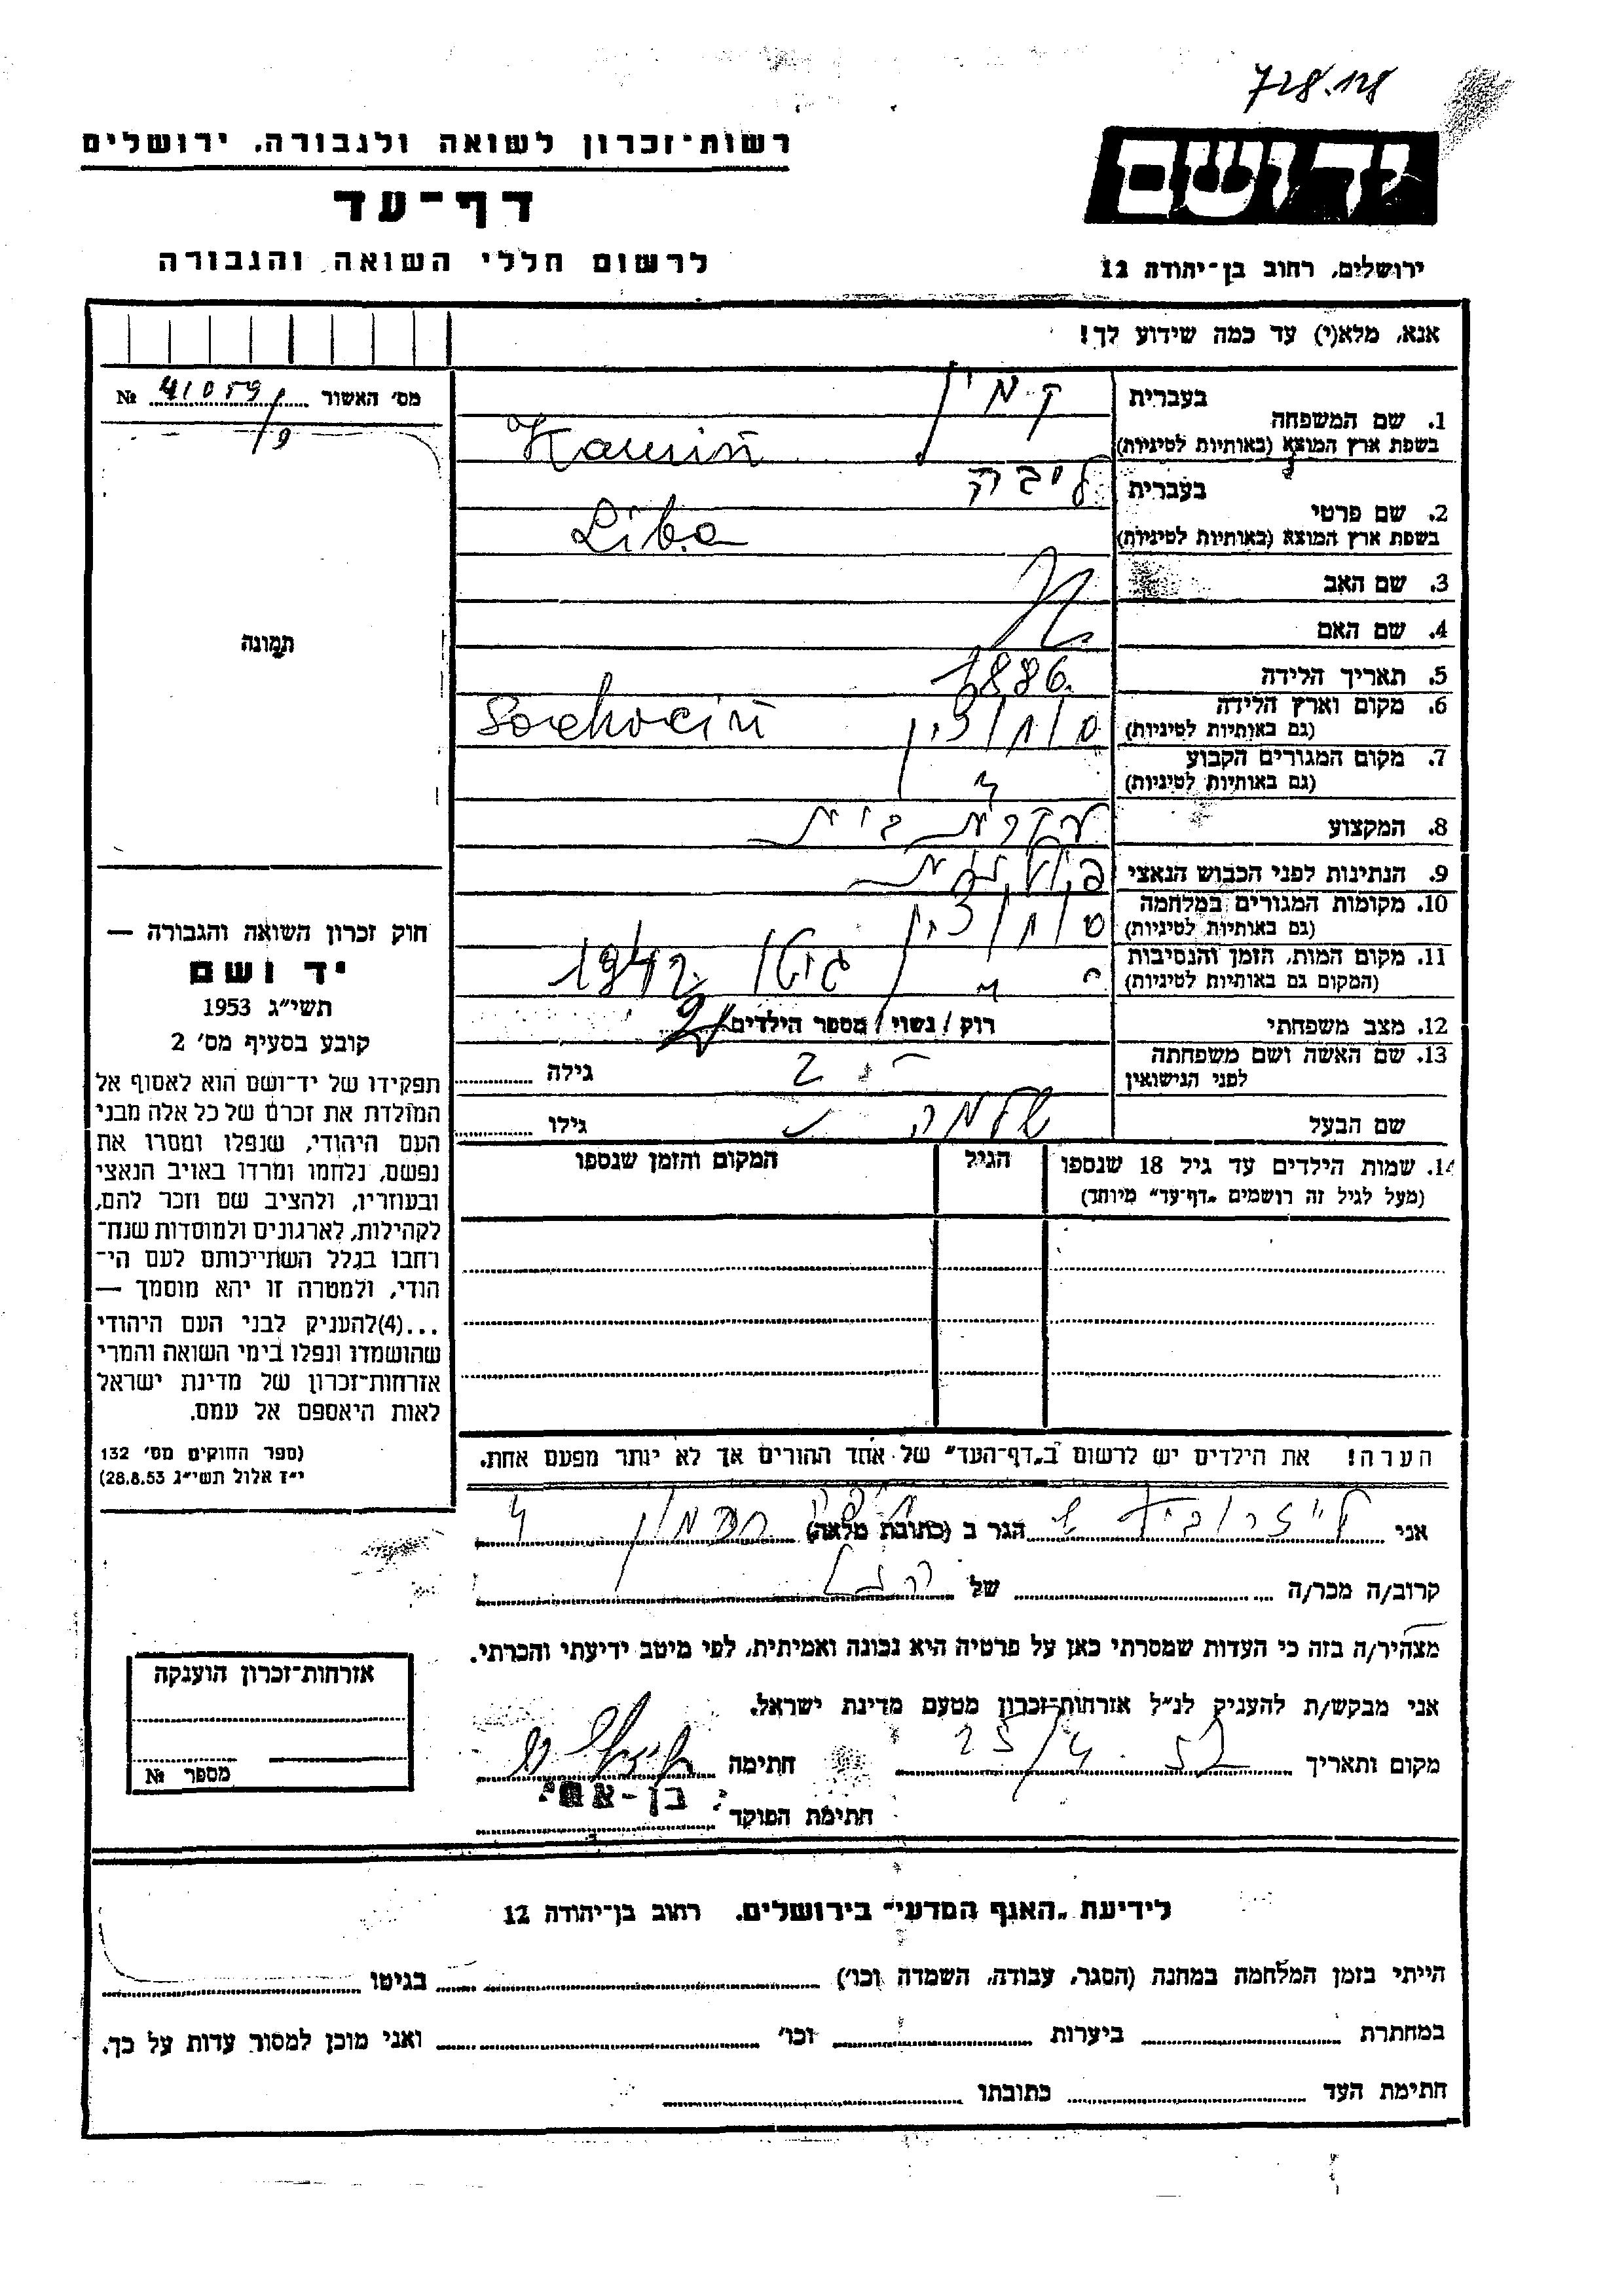 728.128
רשות־זכרון לשואה ולגבורה, ירושלים
יד ושם
דף־עד
לרשום חללי השואה והגבורה
ירושלים, רחוב בן־יהודה 12
אנא, מלא(י) עד כמה שידוע לך!
מס׳ האשור 41059 №
9
1. שם המשפחה
בעברית קמין
בשפת ארץ המוצא (באותיות לטיניות) Kamiń
2. שם פרטי
בעברית ליבה
בשפת ארץ המוצא (באותיות לטיניות) Liba
3. שם האב
4. שם האם
5. תאריך הלידה 1886
6. מקום וארץ הלידה סוחוצין Sochociń
(גם באותיות לטיניות)
7. מקום המגורים הקבוע "
(גם באותיות לטיניות)
8. המקצוע עקרת בית
9. הנתינות לפני הכבוש הנאצי פולנית
10. מקומות המגורים במלחמה סוחוצין
(גם באותיות לטיניות)
11. מקום המות, הזמן והנסיבות גיטו 1942
(המקום גם באותיות לטיניות)
12. מצב משפחתי רוק / נשוי / מספר הילדים 2
13. שם האשה ושם משפחתה גילה
לפני הנישואין
שם הבעל שלמה גילו
14. שמות הילדים עד גיל 18 שנספו הגיל המקום והזמן שנספו
(מעל לגיל זה רושמים „דף־עד״ מיוחד)
תמונה
חוק זכרון השואה והגבורה —
יד ושם
תשי״ג 1953
קובע בסעיף מס׳ 2
תפקידו של יד־ושם הוא לאסוף אל
המולדת את זכרם של כל אלה מבני
העם היהודי, שנפלו ומסרו את
נפשם, נלחמו ומרדו באויב הנאצי
ובעוזריו, ולהציב שם וזכר להם,
לקהילות, לארגונים ולמוסדות שנח־
רבו בגלל השתייכותם לעם הי־
הודי, ולמטרה זו יהא מוסמך —
...(4)להעניק לבני העם היהודי
שהושמדו ונפלו בימי השואה והמרי
אזרחות־זכרון של מדינת ישראל
לאות היאספם אל עמם.
(ספר החוקים מס׳ 132
י״ז אלול תשי״ג 28.8.53)
הערה! את הילדים יש לרשום ב„דף־העד״ של אחד ההורים אך לא יותר מפעם אחת.
אני הגר ב (כתובת מלאה)
קרוב/ה מכר/ה של
מצהיר/ה בזה כי העדות שמסרתי כאן על פרטיה היא נכונה ואמיתית, לפי מיטב ידיעתי והכרתי.
אני מבקש/ת להעניק לנ״ל אזרחות־זכרון מטעם מדינת ישראל.
מקום ותאריך 25/4. חתימה
בן-
חתימת הפוקד
אזרחות־זכרון הוענקה
מספר №
לידיעת „האגף המדעי״ בירושלים. רחוב בן־יהודה 12
הייתי בזמן המלחמה במחנה (הסגר, עבודה, השמדה וכו׳) בגיטו
במחתרת ביערות וכו׳ ואני מוכן למסור עדות על כך.
חתימת העד כתובתו